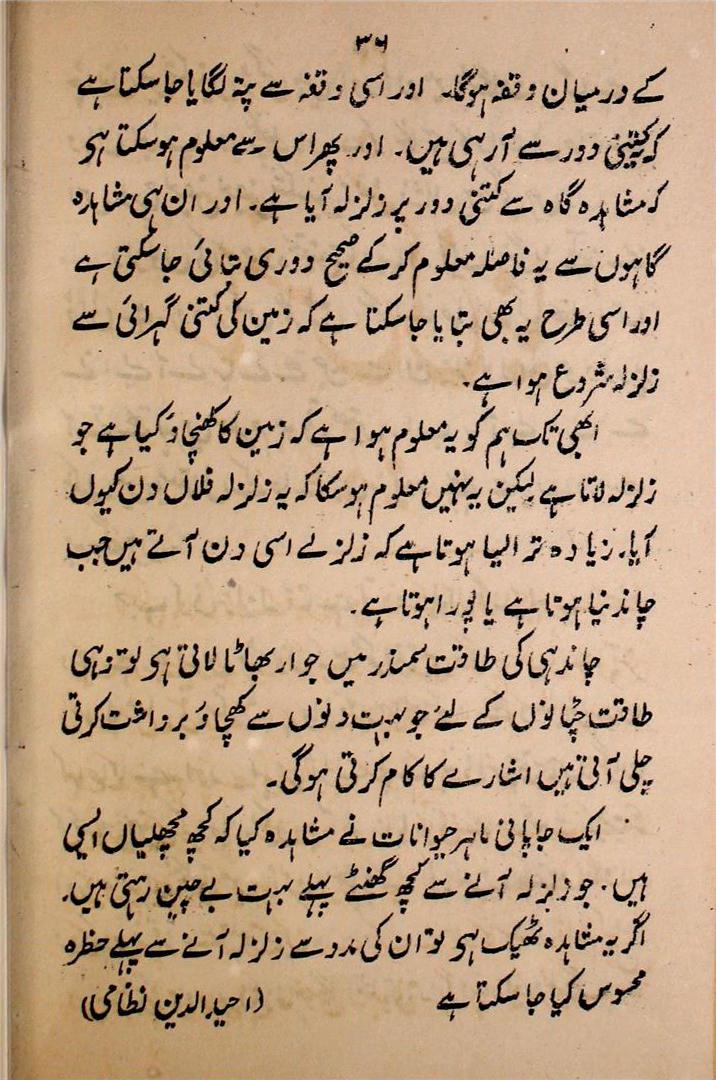 ۳۶
کے درمیان وقفہ ہوگا۔ اور اسی وقفہ سے پتہ لگایا جا سکتا ہے
کہ یہ کتنی دور سے آ رہی ہیں۔ اور پھر اس سے معلوم ہو سکتا ہو
کہ مشاہدہ گاہ سے کتنی دور پر زلزلہ آیا ہے۔ اور ان ہی مشاہدہ
گاہوں سے یہ فاصلہ معلوم کرکے صحیح دوری بتائی جا سکتی ہے
اور اسی طرح یہ بھی بتایا جا سکتا ہے کہ زمین کی کتنی گہرائی سے
زلزلہ شروع ہوا ہے۔
ابھی تک ہم کو یہ معلوم ہوا ہے کہ زمین کا کھنچاؤ کیا ہے جو
زلزلہ لاتا ہے لیکن یہ نہیں معلوم ہو سکا کہ یہ زلزلہ فلاں دن کیوں
آیا۔ زیادہ تر ایسا ہوتا ہے کہ زلزلے اسی دن آتے ہیں جب
چاند نیا ہوتا ہے یا پورا ہوتا ہے۔
چاند ہی کی طاقت سمندر میں جوار بھاٹا لاتی ہو تو وہی
طاقت چٹانوں کے لئے جو بہت دنوں سے کھچاؤ برداشت کرتی
چلی آتی ہیں اشارے کا کام کرتی ہوگی۔
ایک جاپانی ماہر حیوانات نے مشاہدہ کیا کہ کچھ مچھلیاں ایسی
ہیں۔ جو زلزلہ آنے سے کچھ گھنٹے پہلے بہت بے چین رہتی ہیں۔
اگر یہ مشاہدہ ٹھیک ہو تو ان کی مدد سے زلزلہ آنے سے پہلے خطرہ
محسوس کیا جا سکتا ہے (احید الدین نظامی)